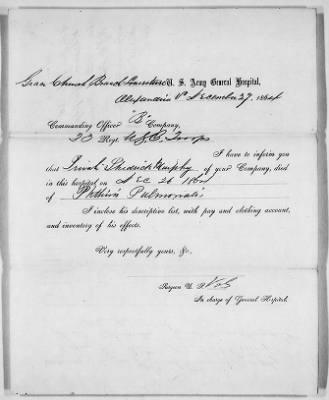 Grace Church Branch U. S. Army General Hospital,
Alexandria Va December 27, 1864
Commanding Officer "B" Company,
Regt. U. S. C. Troops
I have to inform you
that Privat Shedrick Murphy of your Company, died
in this hospital on Dec 26 1864
of Phthisis Pulmonalis
I inclose his descriptive list, with pay and clothing account,
and inventory of his effects.
Very respectfully yours, &c.
Surgeon U. S. Vols
In charge of General Hospital.